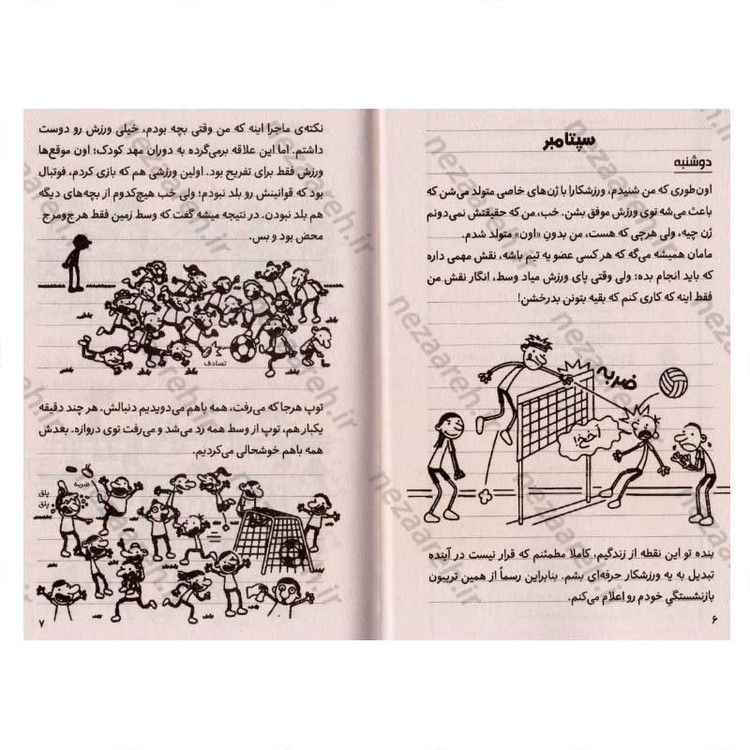 سپتامبر
دوشنبه
اون‌طوری که من شنیدم، ورزشکارا با ژن‌های خاصی متولد می‌شن که
باعث می‌شه توی ورزش موفق بشن. خب، من که حقیقتش نمی‌دونم
ژن چیه، ولی هرچی که هست، من بدونِ «اون» متولد شدم.
مامان همیشه می‌گه که هر کسی عضو یه تیم باشه، نقش مهمی داره
که باید انجام بده؛ ولی وقتی پای ورزش میاد وسط، انگار نقش من
فقط اینه که کاری کنم که بقیه بتونن بدرخشن!
ضربه
آخخ!
بنده تو این نقطه از زندگیم، کاملا مطمئنم که قرار نیست در آینده
تبدیل به یه ورزشکار حرفه‌ای بشم. بنابراین رسماً از همین تریبون
بازنشستگیِ خودم رو اعلام می‌کنم.
۶
نکته‌ی ماجرا اینه که من وقتی بچه بودم، خیلی ورزش رو دوست
داشتم. اما این علاقه برمی‌گرده به دوران مهد کودک؛ اون موقع‌ها
ورزش فقط برای تفریح بود. اولین ورزشی هم که بازی کردم، فوتبال
بود که قوانینش رو بلد نبودم؛ ولی خب هیچ‌کدوم از بچه‌های دیگه
هم بلد نبودن. در نتیجه میشه گفت که وسط زمین فقط هرج‌ومرج
محض بود و بس.
تصادف
توپ هرجا که می‌رفت، همه باهم می‌دویدیم دنبالش. هر چند دقیقه
یکبار هم، توپ از وسط همه رد می‌شد و می‌رفت توی دروازه. بعدش
همه باهم خوشحالی می‌کردیم.
ضربه
پاق
پاق
۷
nezaareh.ir
nezaareh.ir
nezaareh.ir
nezaareh.ir
nezaareh.ir
nezaareh.ir